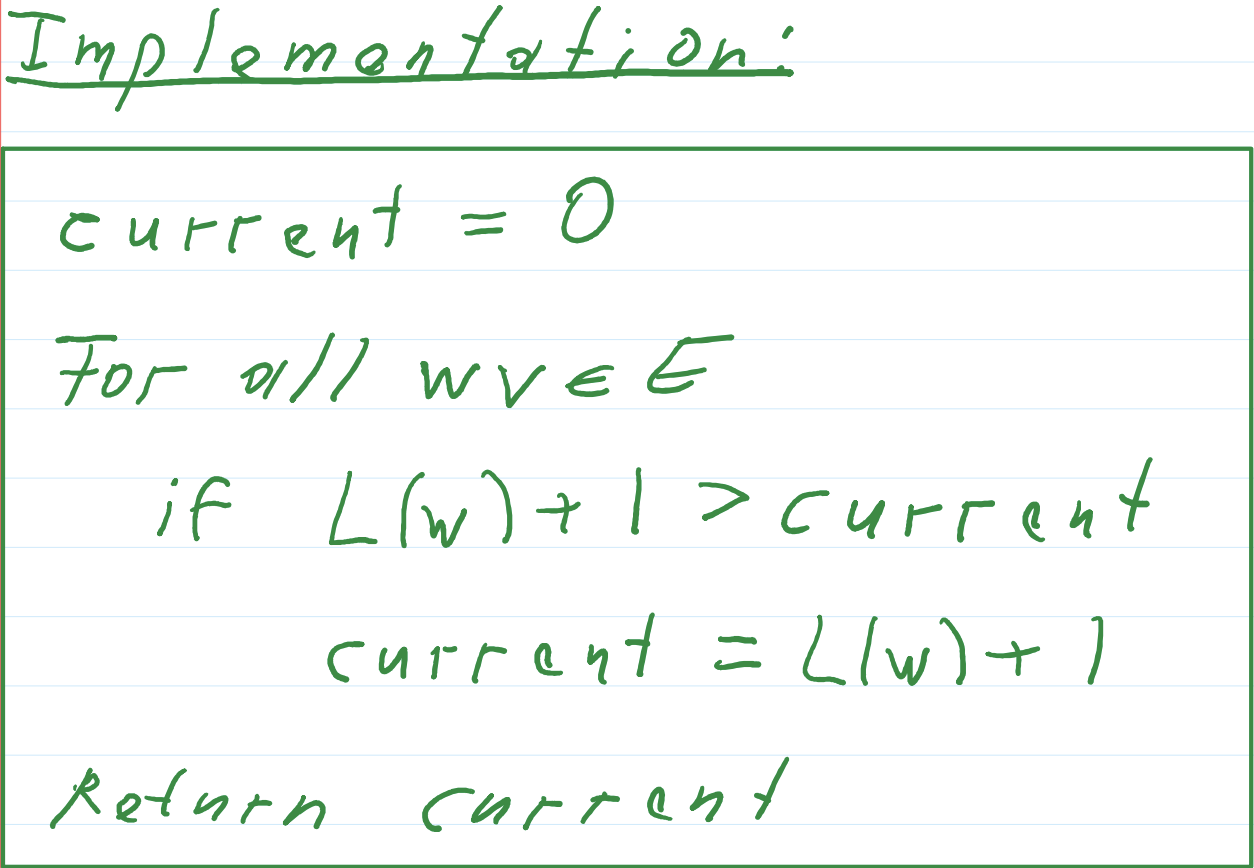 Implementation:
current = 0
For all wv ∈ E
if L(w) + 1 > current
current = L(w) + 1
Return current